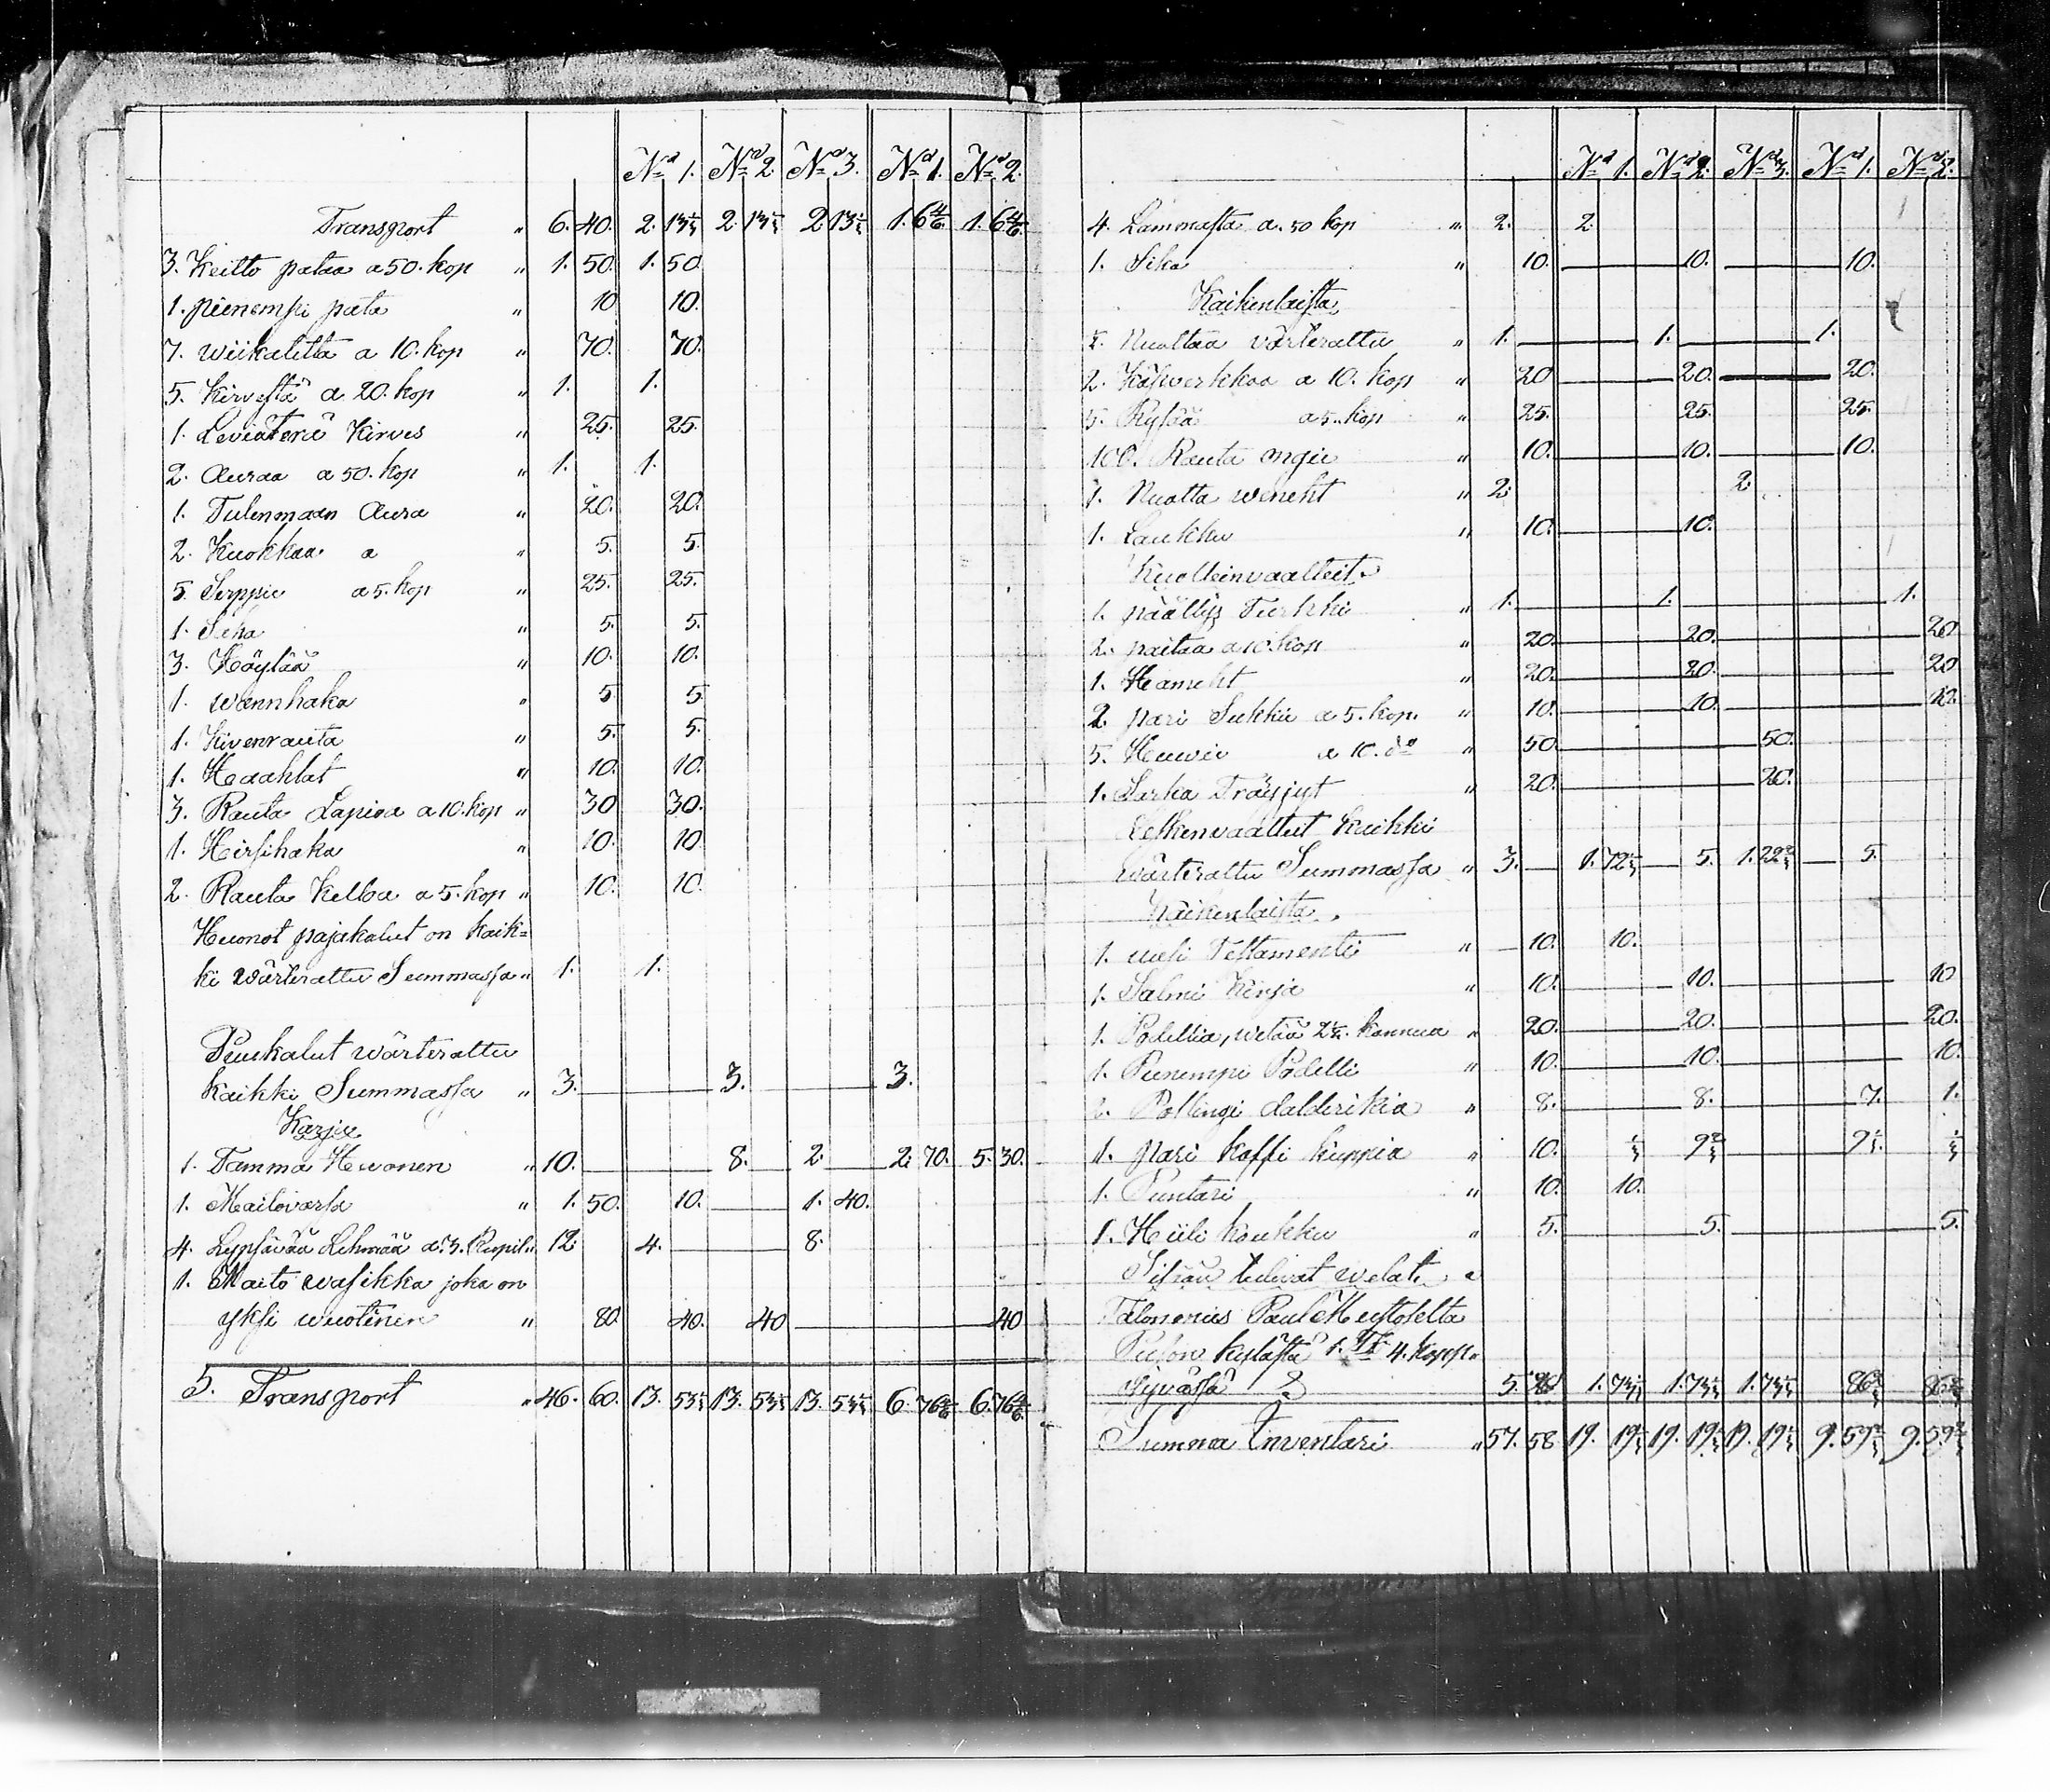 No 1. No 2 No 3. No 1. No 2.
Transport " 6. 40. 2. 13⅓ 2. 13⅓ 2 13⅓ 1. 6 4/6. 1. 6 4/6.
3. Keitto pataa a 50. kop " 1. 50. 1. 50
1. pienempi pata " 10 10.
7. wiikatetta a 10. kop " 70. 70.
5. Kirvestä a 20. kop " 1. 1.
1. Leviäterä Kirves " 25. 25.
2. Auraa a 50. kop " 1. 1.
1. Tulenmaan Aura " 20. 20.
2. Kuokkaa a " 5. 5.
5 Serppiä a 5. kop " 25. 25.
1. Saha " 5. 5.
3. Höylää " 10. 10.
1. wannhaka " 5 5
1. Kivenrauta " 5. 5.
1. Haahlat " 10. 10.
3. Rauta Lapioa a 10. kop " 30 30.
1. Hirsihaka " 10. 10
2. Rauta Kelloa a 5. kop " 10. 10.
Huonot pajakalut on kaik=
ki wärterattu Summassa " 1. 1.
Puukalut wärterattu
kaikki Summassa " 3. 3. 3.
Karja
1. Tamma Hevonen " 10. 8. 2. 2. 70. 5. 30.
1. Maitovarsa " 1. 50. 10. 1. 40.
4. Lypsävää Lehmää a 3. Rupil. " 12. 4. 8.
1. Maito wasikka joka on
yksi wuotinen " 80. 40. 40 40
5. Transport " 46. 60. 13. 53⅓ 13. 53⅓ 13. 53⅓ 6. 76 4/6 6. 76 4/6
No 1. No 2. No 3. No 1. No 2.
4. Lammasta a. 50 kop " 2. 2.
1. Sika " 10. 10. 10.
Kaikenlaista
Nuottaa värterattu " 1. 1. 1.
2. Käsverkkoa a 10. kop " 20 20. 20.
5. Rysää a 5. kop " 25. 25. 25.
100. Rauta ongia " 10. 10. 10.
1. Nuotta weneht " 2. 2
1. Laukku " 10. 10.
Kuolleinvaatteit.
1. päällys Turkki " 1. 1. 1.
2. paitaa a 10. kop " 20. 20. 20
1. Hameht " 20. 20. 20
2. pari Sukkia a 5. kop. " 10. 10.
5. Huivia a 10. do " 50 50.
1. Sarka Tröijyt " 20. 20.
Leskenvaattet kaikki
Wärterattu Summassa " 3. 1. 72⅓ 5. 1. 22⅔ 5.
Kaikenlaista
1. uusi Testamenti " 10. 10.
1. Salmi Kirja " 10. 10. 10
1. Podellia, wetää 2½. kannua " 20. 20. 20.
1. Pienempi Podelli " 10. 10. 10.
2. Poslingi dalderikia " 8. 8. 7. 1.
1. pari koffi kuppia " 10.
1. Puntari " 10. 10.
1. Hiili koukku " 5. 5. 5.
Sisään tulevat welat.
Talonerius Paul
kylästä 4. kopp.
Syvässä 1. 73⅓ 1. 73⅓ 1. 73⅓
Summa Inventari " 57. 58 19. 19⅓ 19. 19⅓ 19. 19⅓ 9. 59⅔ 9. 59⅔